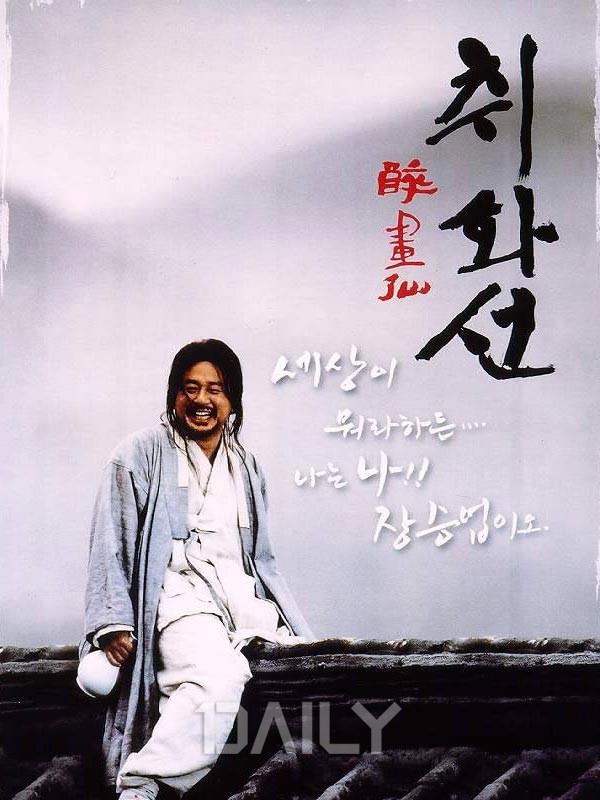 취화선
醉畫仙
세상이
뭐라하든....
나는 나!!
장승업이오.
1DAILY